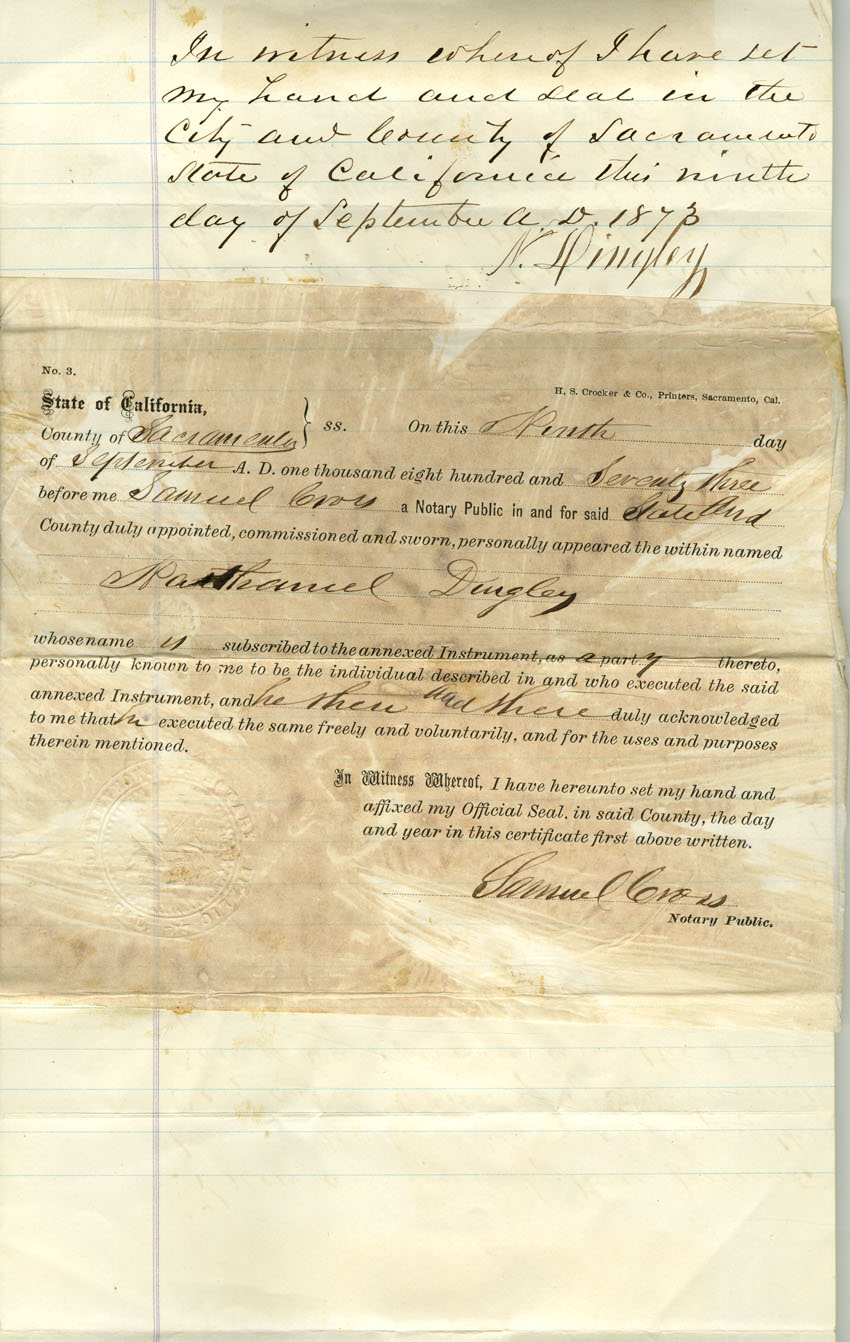 In witness whereof I have set
my hand and seal in the
City and County of Sacramento
State of California this ninth
day of September A. D. 1873
N. Dingley
No. 3.
H. S. Crocker & Co., Printers, Sacramento, Cal.
State of California,
County of Sacramento } ss. On this Ninth day
of September A. D. one thousand eight hundred and Seventy three
before me Samuel Cross a Notary Public in and for said State And
County duly appointed, commissioned and sworn, personally appeared the within named
Nathaniel Dingley
whose name is subscribed to the annexed Instrument, as a party thereto,
personally known to me to be the individual described in and who executed the said
annexed Instrument, and he then and there duly acknowledged
to me that he executed the same freely and voluntarily, and for the uses and purposes
therein mentioned.
In Witness Whereof, I have hereunto set my hand and
affixed my Official Seal, in said County, the day
and year in this certificate first above written.
Samuel Cross
Notary Public.